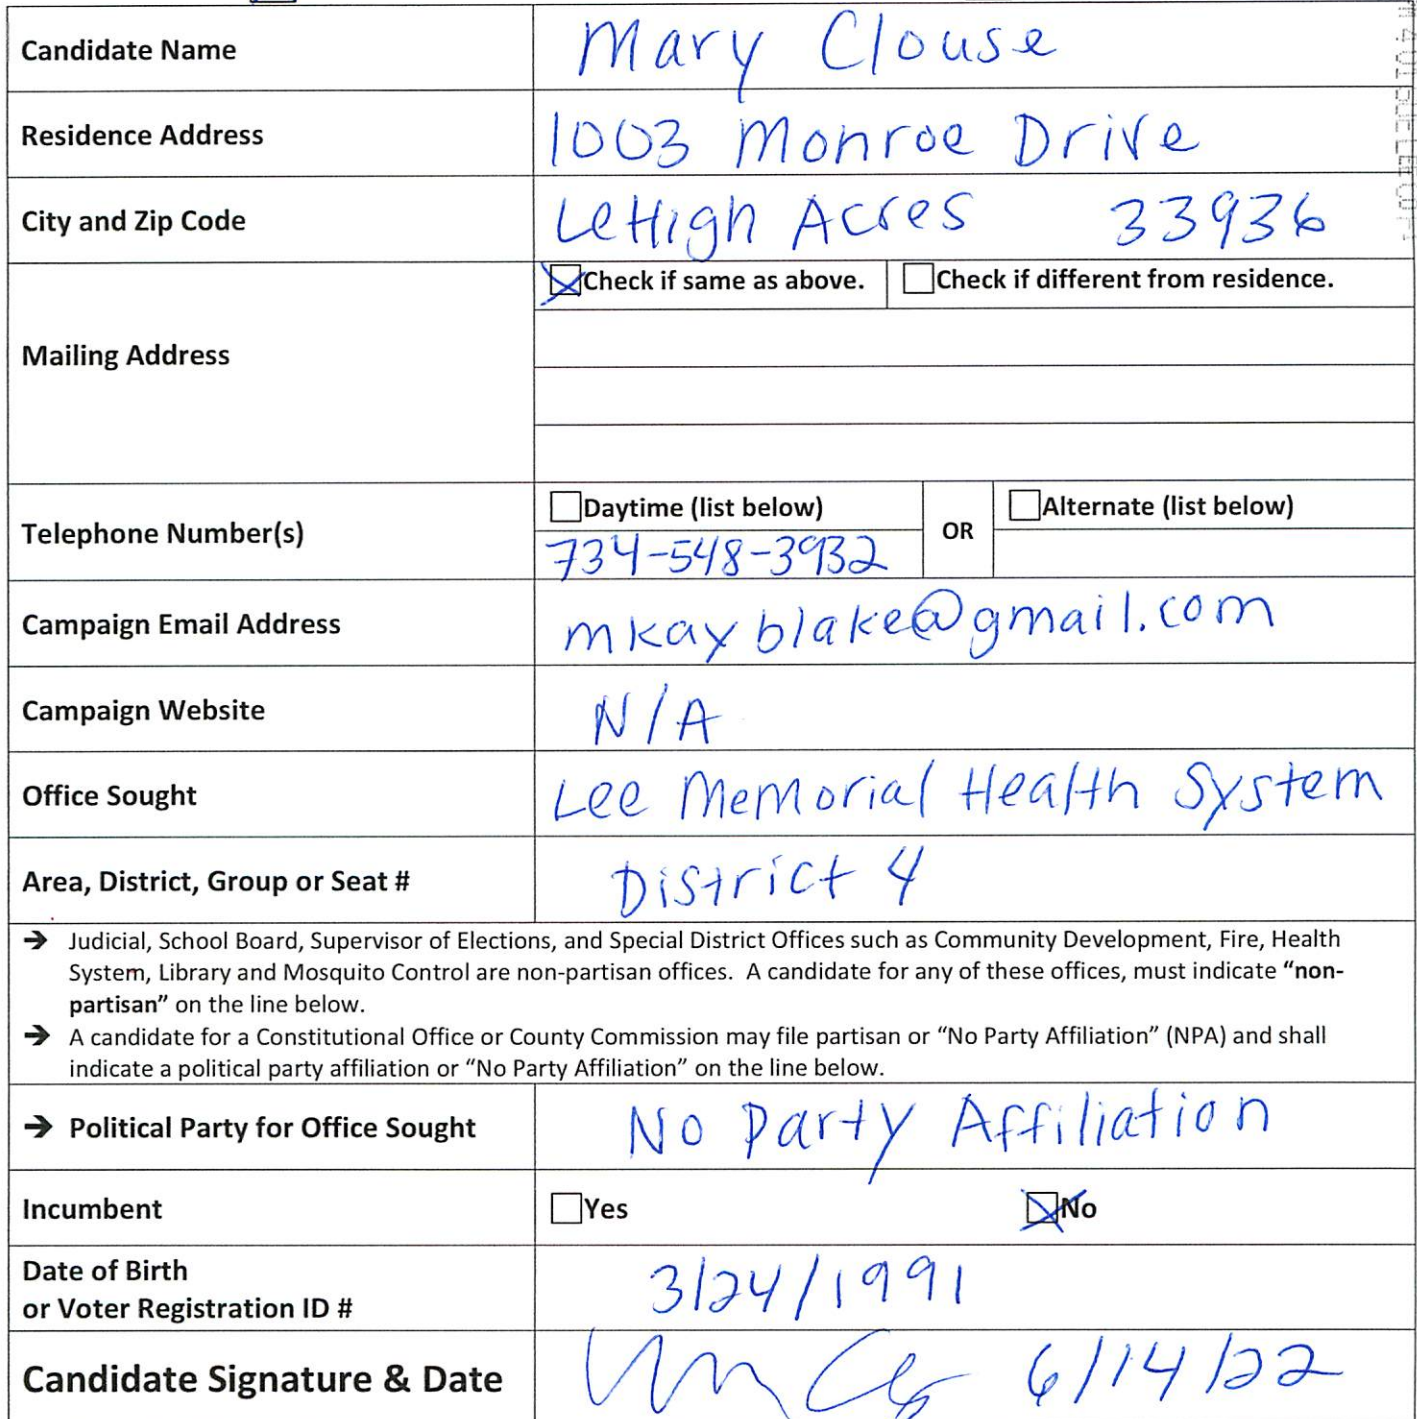 Candidate Name Mary Clouse
Residence Address 1003 Monroe Drive
City and Zip Code LeHigh Acres 33936
Check if same as above. Check if different from residence.
Mailing Address
Daytime (list below) Alternate (list below)
Telephone Number(s) OR
734-548-3932
Campaign Email Address mkayblake@gmail.com
Campaign Website N/A
Office Sought Lee Memorial Health System
Area, District, Group or Seat # District 4
→ Judicial, School Board, Supervisor of Elections, and Special District Offices such as Community Development, Fire, Health
System, Library and Mosquito Control are non-partisan offices. A candidate for any of these offices, must indicate “non-
partisan” on the line below.
→ A candidate for a Constitutional Office or County Commission may file partisan or “No Party Affiliation” (NPA) and shall
indicate a political party affiliation or “No Party Affiliation” on the line below.
→ Political Party for Office Sought No Party Affiliation
Incumbent Yes No
Date of Birth
or Voter Registration ID # 3/24/1991
Candidate Signature & Date 6/14/22